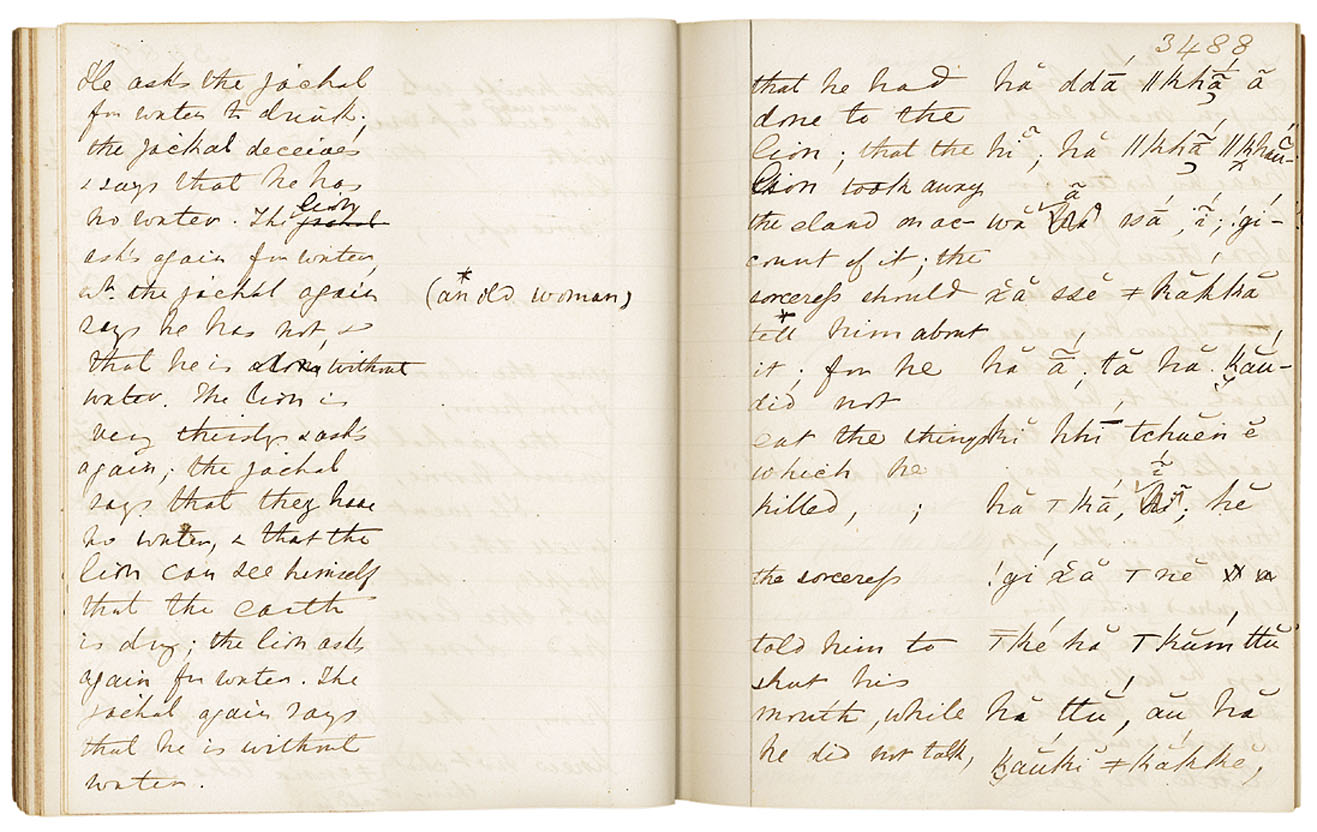 He asks the jackal
for water to drink;
the jackal deceives
& says that he has
no water. The lion jackal
asks again for water,
wh. the jackal again
says he has not, &
that he is alone, without
water. The lion is
very thirsty & asks
again; the jackal
says that they have
no water, & that the
lion can see himself
that the earth
is dry; the lion asks
again for water. The
jackal again says
that he is without
water.
(an old woman)
3488
that he had hă ddā́ ǁkhā̃́ ã
done to the
lion; that the hĭ ̃; hă ǁkhā̃́
lion took away
the eland on ac- wă ā̃ ; ǃgi-
count of it; the
sorceress should x̆ă ssĕ ǂkăkkă
tell him about
it; for he hă ā̃́; tă hă
did not
eat the things hĭ tchuĕn ĕ
which he
killed, ; hă ; hĕ
the sorceress ǃgíx̆ă
told him to hă ttŭ
shut his
mouth, while hă ttŭ́, ău hă
he did not talk, ǂkăkkĕ,